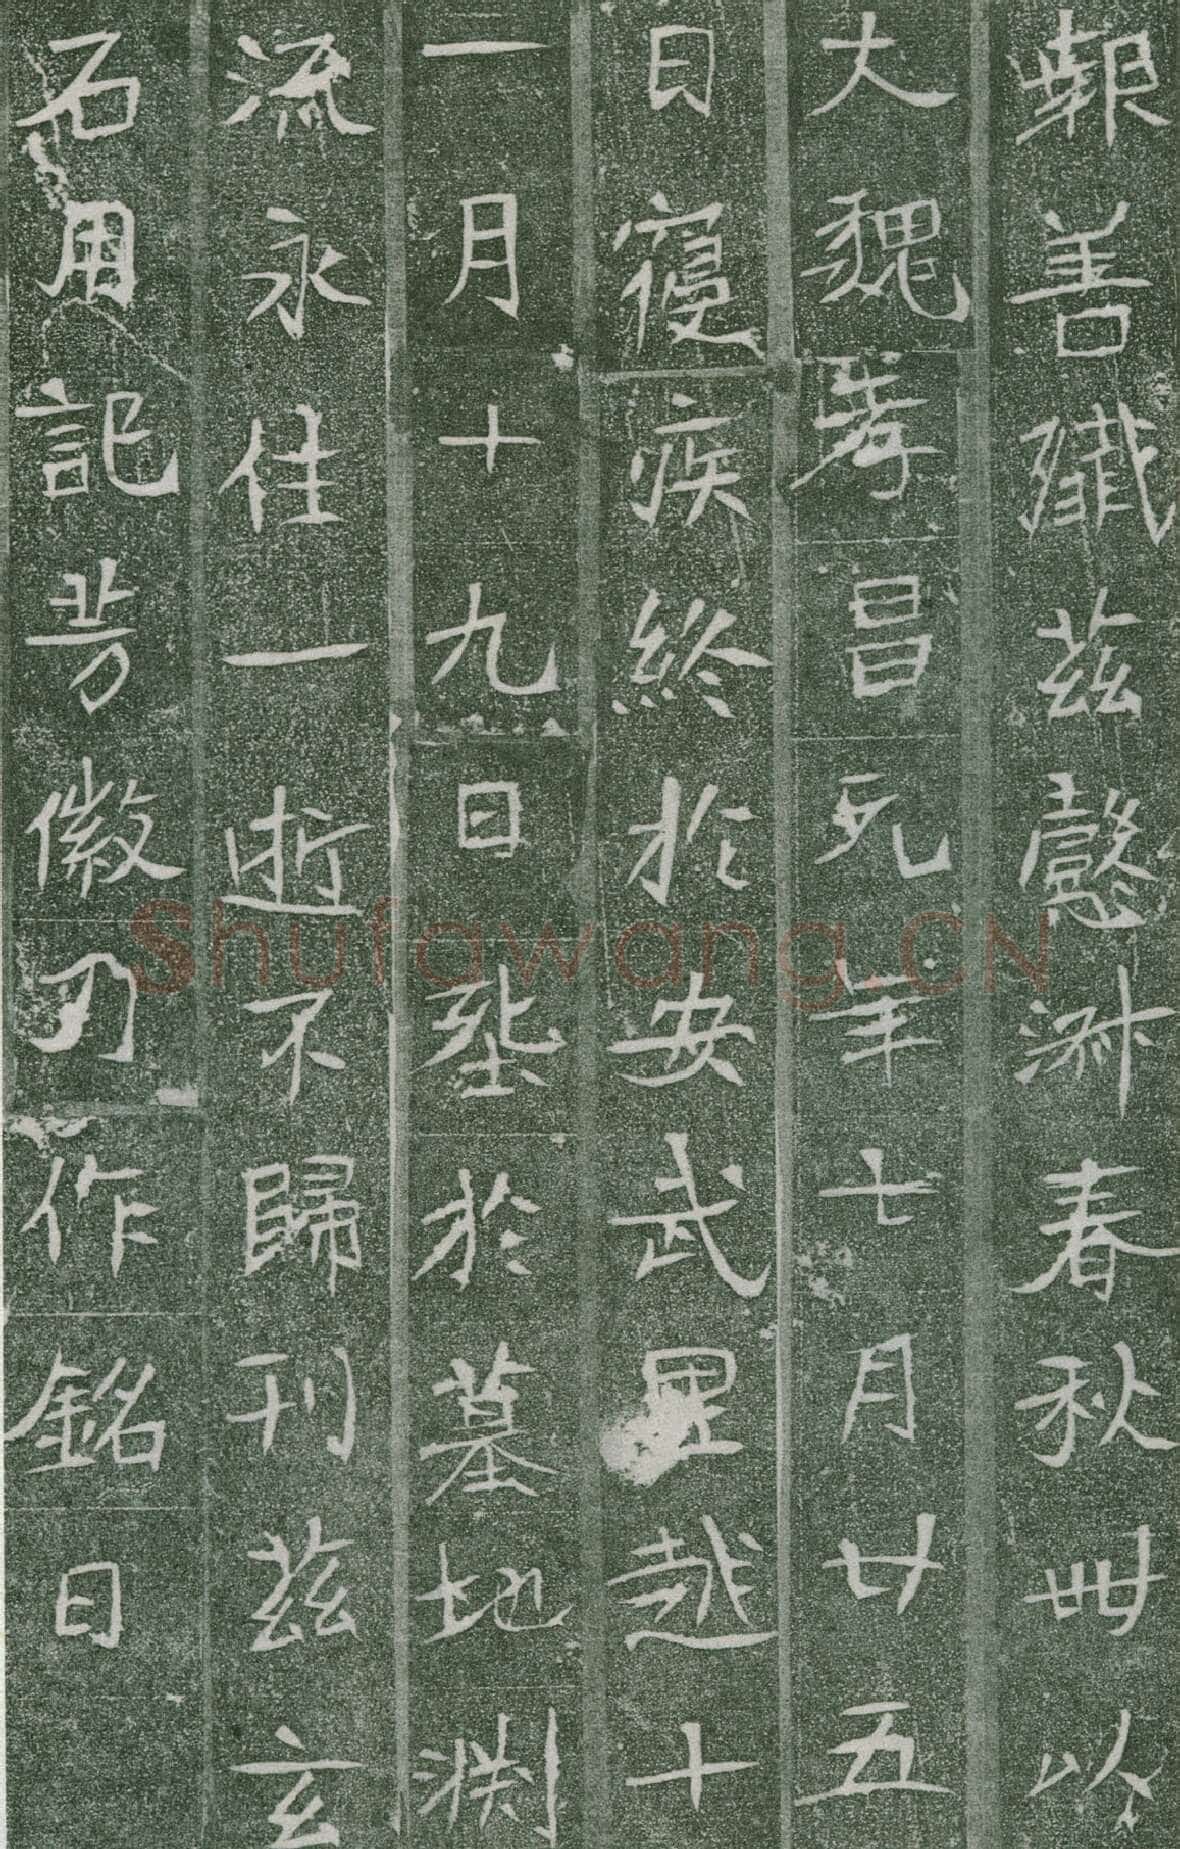 報善殲茲懿淋春秋卌以
大魏孝昌元年七月廿五
日寑疾終於安武里越十
一月十九日塟於墓地淵
流永住一逝不歸刊茲玄
石用記芳徽乃作銘曰
Shufawang.CN